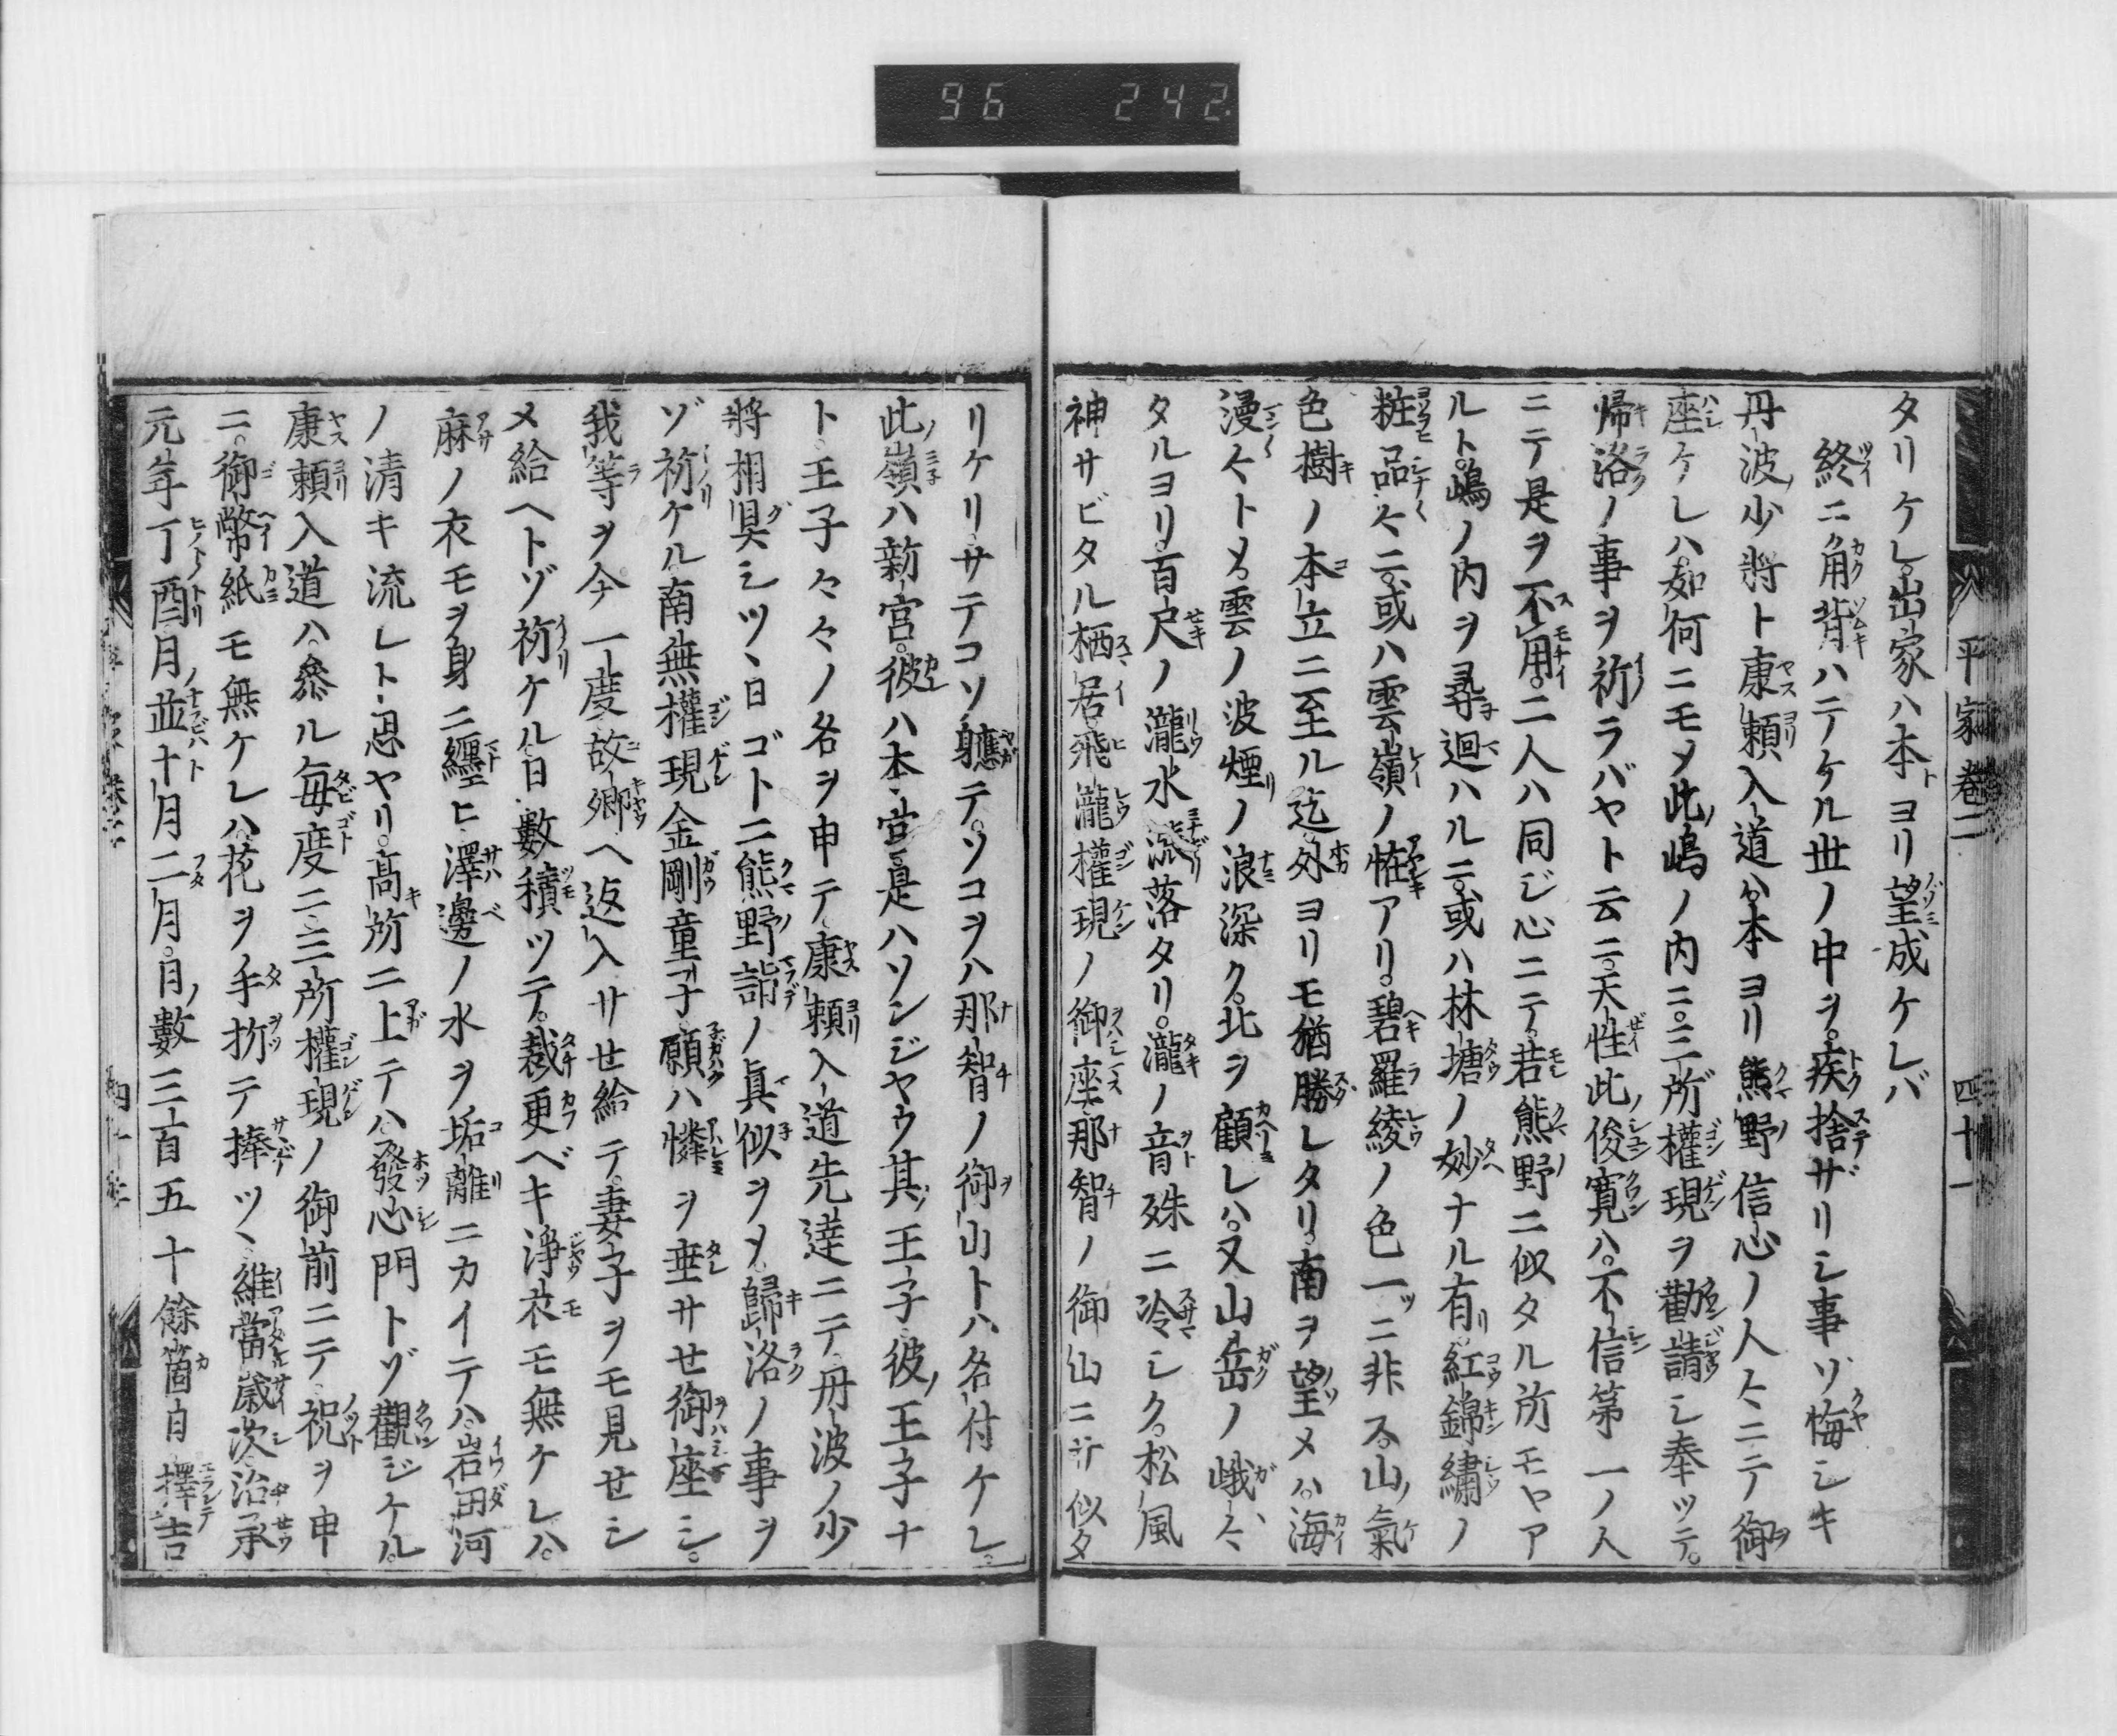 96 242
平家巻二 四十一
タリケレ。出家ハ本ヨリ望成ケレバ
終ニ角背ハテケル世ノ中ヲ。疾捨ザリシ事ゾ悔シキ
丹波少將ト康頼入道ハ。本ヨリ熊野信心ノ人々ニテ御
座ケレハ。如何ニモメ此嶋ノ内ニ。三所權現ヲ勸請シ奉ツテ。
帰洛ノ事ヲ祈ラバヤト云ニ。天性此俊寛ハ。不信第一ノ人
ニテ是ヲ不用。二人ハ同ジ心ニテ。若熊野ニ似タル所モヤア
ルト。嶋ノ内ヲ尋迴ハルニ。或ハ林塘ノ妙ナル有リ。紅錦繡ノ
粧品々ニ。或ハ雲嶺ノ恠アリ。碧羅綾ノ色一ツニ非ス。山ノ氣
色樹ノ本立ニ至ル迄。外ヨリモ猶勝レタリ。南ヲ望メハ。海
漫々トメ。雲ノ波煙ノ浪深ク。北ヲ顧レハ。又山岳ノ峨々
タルヨリ。百尺ノ瀧水流落タリ。瀧ノ音殊ニ冷シク。松風
神サビタル栖居。飛瀧權現ノ御座那智ノ御山ニサ似タ
リケリ。サテコソ軈テ。ソコヲハ那智ノ御山トハ。名付ケレ。
此嶺ハ新宮。彼ハ本宮。是ハソンジヤウ其王子。彼ノ王子ナ
ト。王子々々ノ名ヲ申テ。康頼入道先達ニテ。丹波ノ少
將相具シツヽ。日ゴトニ熊野詣ノ眞似ヲメ。歸洛ノ事ヲ
ゾ祈ケル。南無權現金剛童子。願ハ憐ヲ垂サセ御座シ。
我等ヲ今一度故郷ヘ返入サセ給テ。妻子ヲモ見せシ
メ給ヘトゾ祈ケル。日數積ツテ。裁更ベキ浄衣モ無ケレハ。
麻ノ衣モヲ身ニ纒ヒ。澤邊ノ水ヲ垢離ニカイテハ。岩田河
ノ清キ流レト思ヤリ。高所ニ上テハ。發心門トゾ觀ジケル。
康頼入道ハ。參ル毎度ニ。三所權現ノ御前ニテ。祝ヲ申
ニ。御幣紙モ無ケレハ。花ヲ手折テ捧ツヽ。維當歳次治承
元年丁酉月並十月二月。日ノ數三百五十餘箇日。擇吉